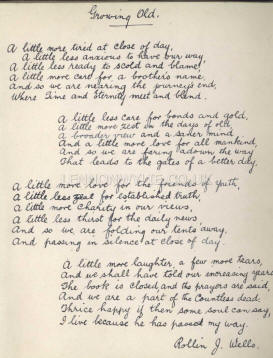 Growing Old.
A little more tired at close of day,
A little less anxious to have our way
A little less ready to scold and blame,
A little more care for a brother's name,
And so we are nearing the journey's end,
Where Time and Eternity meet and blend.
A little less care for bonds and gold,
A little more zest in the days of old,
A broader view and a saner mind
And a little more love for all mankind,
And so we are faring adown the way
That leads to the gates of a better day.
A little more love for the friends of youth,
A little less zeal for established truth,
A little more charity in our views,
A little less thirst for the daily news,
And so we are folding our tents away,
And passing in silence at close of day.
A little more laughter, a few more tears,
And we shall have told our increasing years
The book is closed, and the prayers are said,
And we are a part of the Countless dead;
Thrice happy if then some soul can say,
I live because he has passed my way.
Rollin J. Wells.